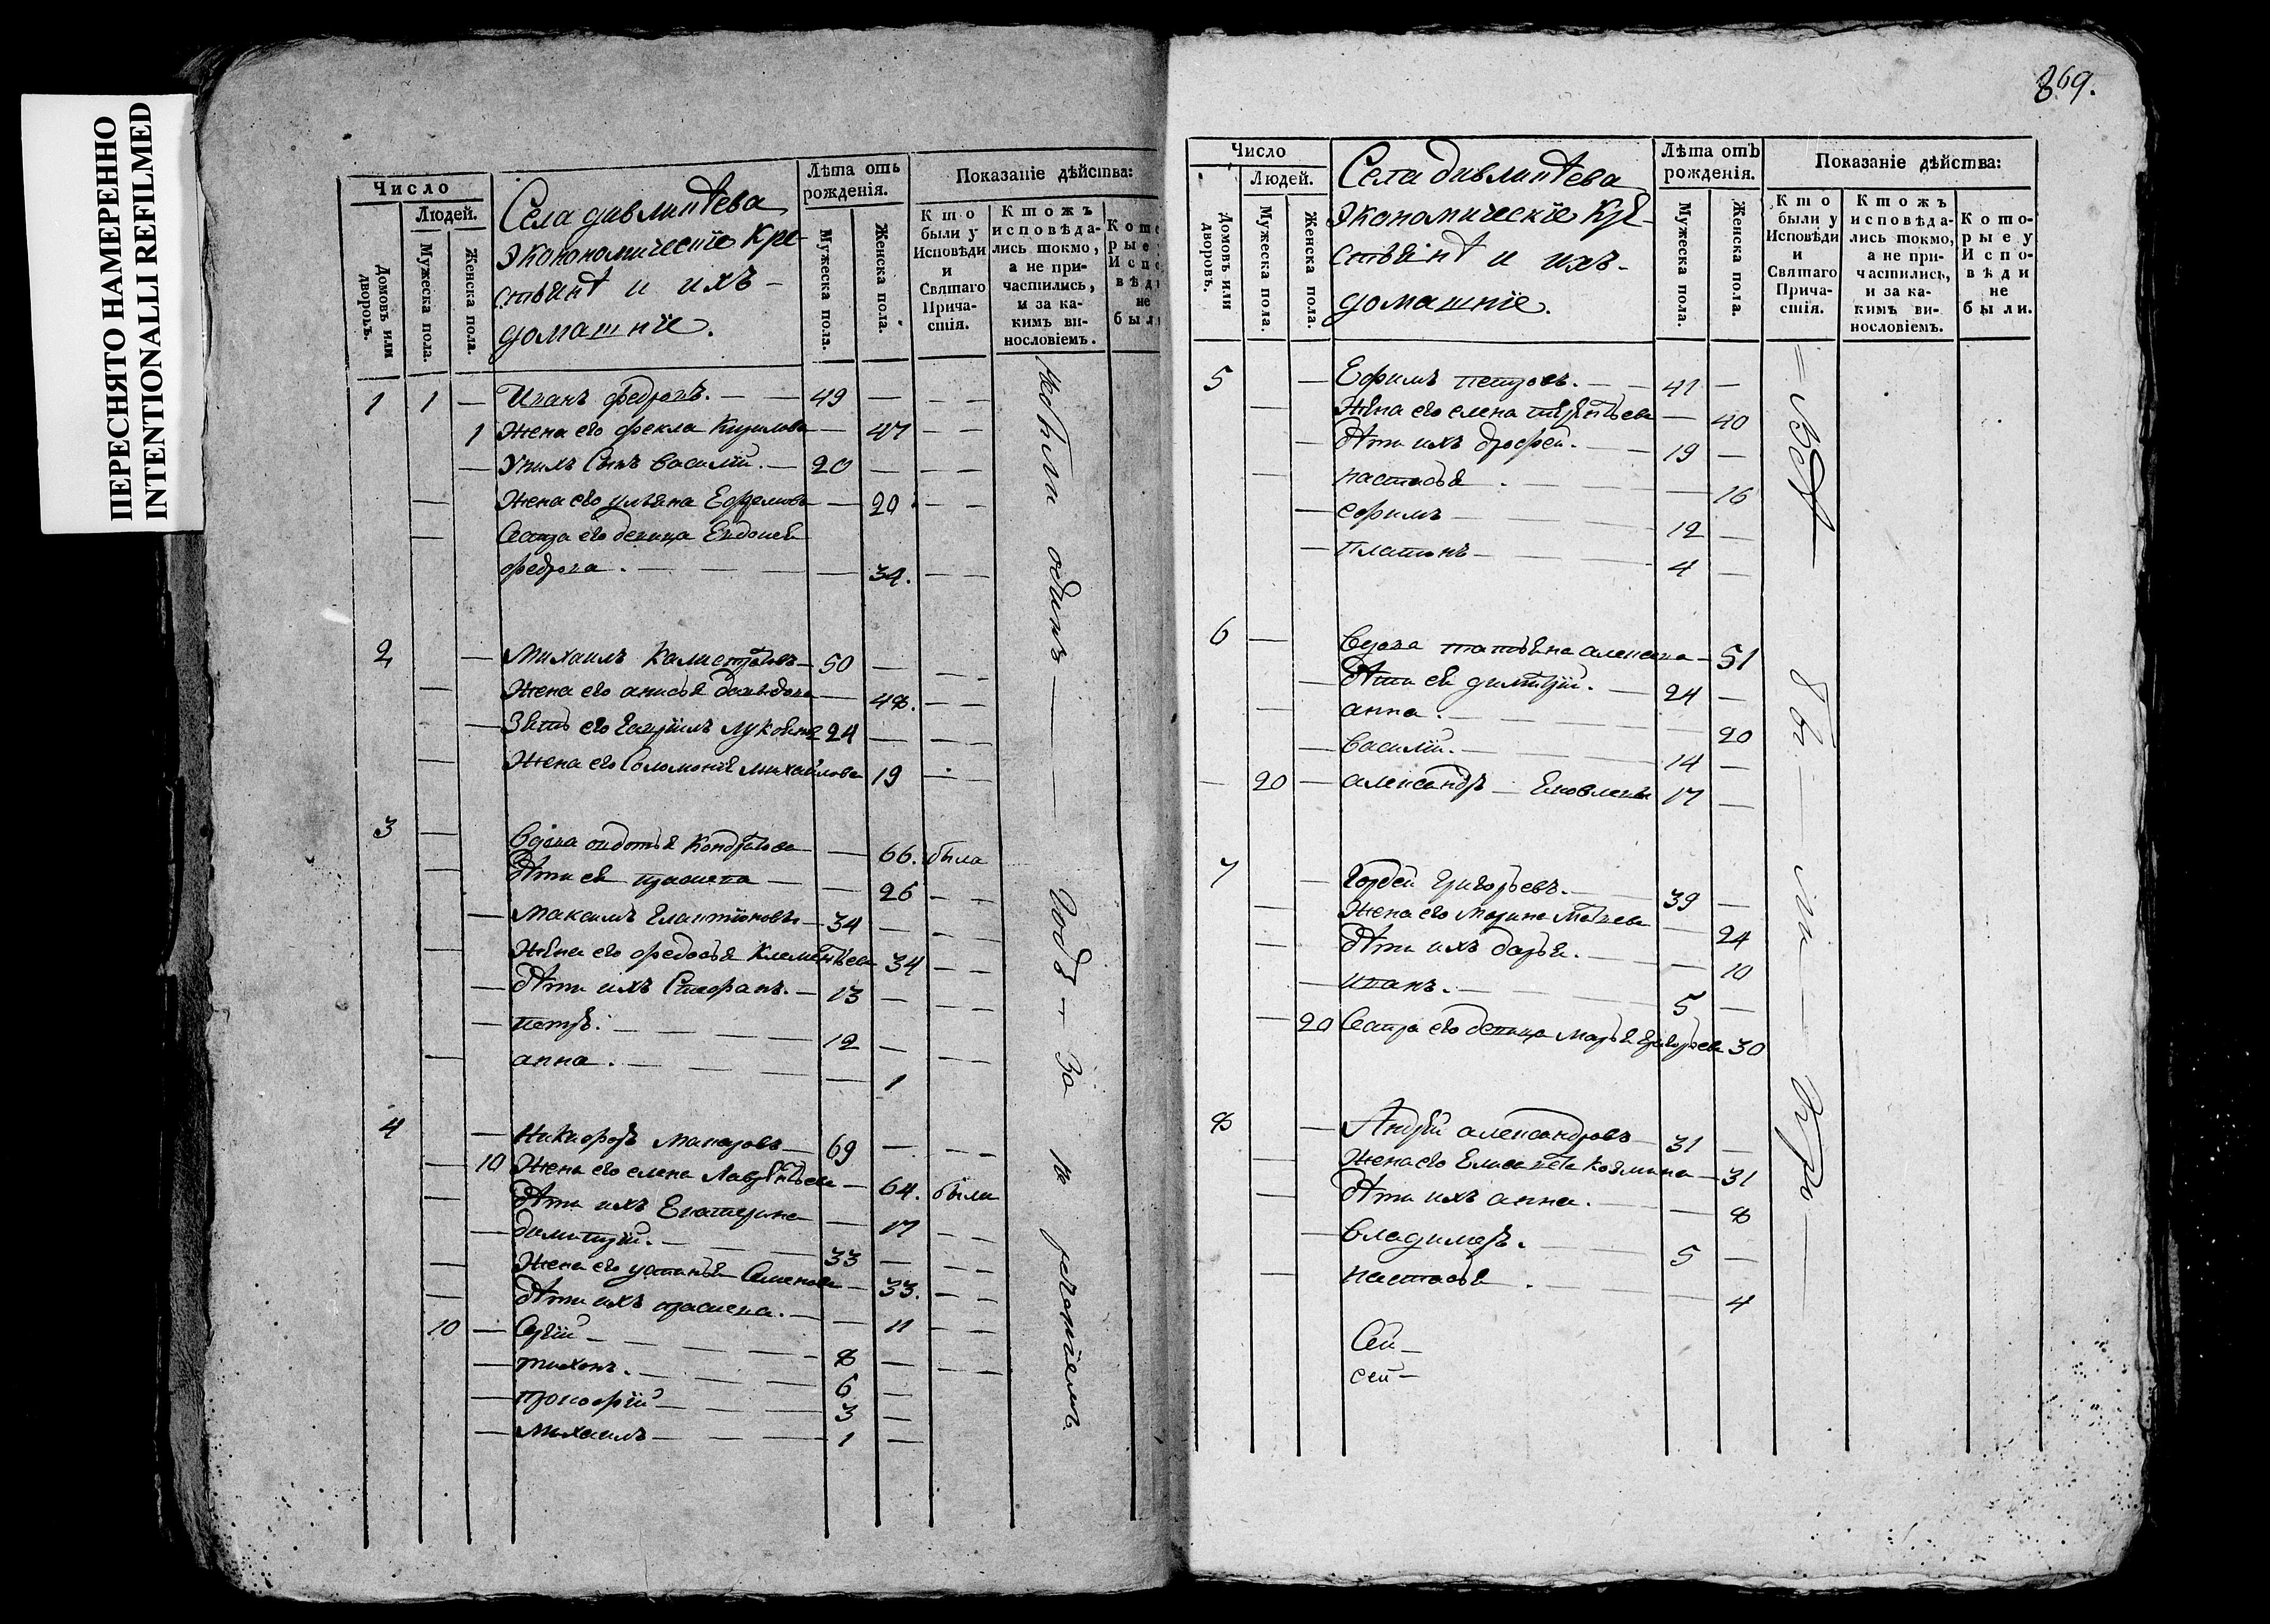 ПЕРЕСНЯТО НАМЕРЕННО
INTENTIONALLI REFILMED
Число
Людей.
Домовъ или дворовъ.
Мужеска пола.
Женска пола.
Села
Экономическіе Кре-
стьянѣ и ихъ
домашніе.
Лѣта отъ
рожденія.
Мужеска пола.
Женска пола.
Показаніе дѣйства:
Кто
были у
Исповѣди
и
Святаго
Прича-
стія.
Ктожъ
исповѣда-
лись токмо,
а не при-
частились,
и за ка-
кимъ ви-
нословіемъ.
1 1 — Иванъ Федровъ. — — 49 — — —
1 Жена его фекла Кирилова — 47 — —
— У нихъ Сынъ василій. — 20 — — —
— Жена его ульяна Ефремова — 20 — —
— Сестра его девица Евдокея
федрова. — — — 34. — —
2 — Михаилъ Калистратовъ — 50 — — —
— Жена его анисья давыдова — 48. — —
— Зять его Гаврiилъ 24 — — —
— Жена его Соломонія михайлова 19 — —
3 — Вдова авдотья Кондратова — 66. была
— Дѣти ея праскева — — 26 — —
— Максимъ — 34 — — —
— Жена его федосья Клементьева 34 — —
— Дѣти ихъ Стефанъ. — 13 — — —
— петръ. — — 12 — — —
— анна. — — — 1
4 — Никифоръ макаровъ — 69 — — —
— 10 Жена его елена Лаврентьева — 64. были
— Дѣти ихъ Екатерина — 17 — —
— димитрій. — — 33 — — —
— Жена его устинья Семенова — 33. — —
— Дѣти ихъ праскева. — — 11 — —
10 — Сергій — — 8 — — —
— тихонъ. — — 6 —
— прокофій — — 3 —
— Михаилъ — — 1 —
не были одинъ — годъ — за не раченіемъ
869.
Число
Людей.
Домовъ или дворовъ.
Мужеска пола.
Женска пола.
Села
Экономическіе Кре-
стьянѣ и ихъ
домашніе.
Лѣта отъ
рожденія.
Мужеска пола.
Женска пола.
Показаніе дѣйства:
Кто
были у
Исповѣди
и
Святаго
Прича-
стія.
Ктожъ
исповѣда-
лись токмо,
а не при-
частились,
и за ка-
кимъ ви-
нословіемъ.
Кото-
рые у
Испо-
вѣди
не
были.
5 — Ефимъ петровъ. — — 41 —
— Жена его елена терентьева — 40
— Дѣти ихъ дрофей. — 19 —
— настасья. — — 16
— ефимъ — — 12 —
— Платонъ — — 4 —
6 — Вдова татьяна алексева — 51
— Дѣти ея димитрій. — 24 —
— анна. — — 20
— василій. — — 14 —
— 20 — александръ — Яковлевъ 17 —
7 — Гордей Григорьевъ. — 39 —
— Жена его марина Матвева — 24
— Дѣти ихъ дарья. — — 10
— иванъ. — — 5 —
— 20 Сестра его девица Марья Григорьева 30
8 — Андрей александровъ — 31 —
— Жена его Елисавета Козмина — 31
— Дѣти ихъ анна. — — 8
— владимеръ. — — 5 —
— настасья. — — 4
Сей —
сей —